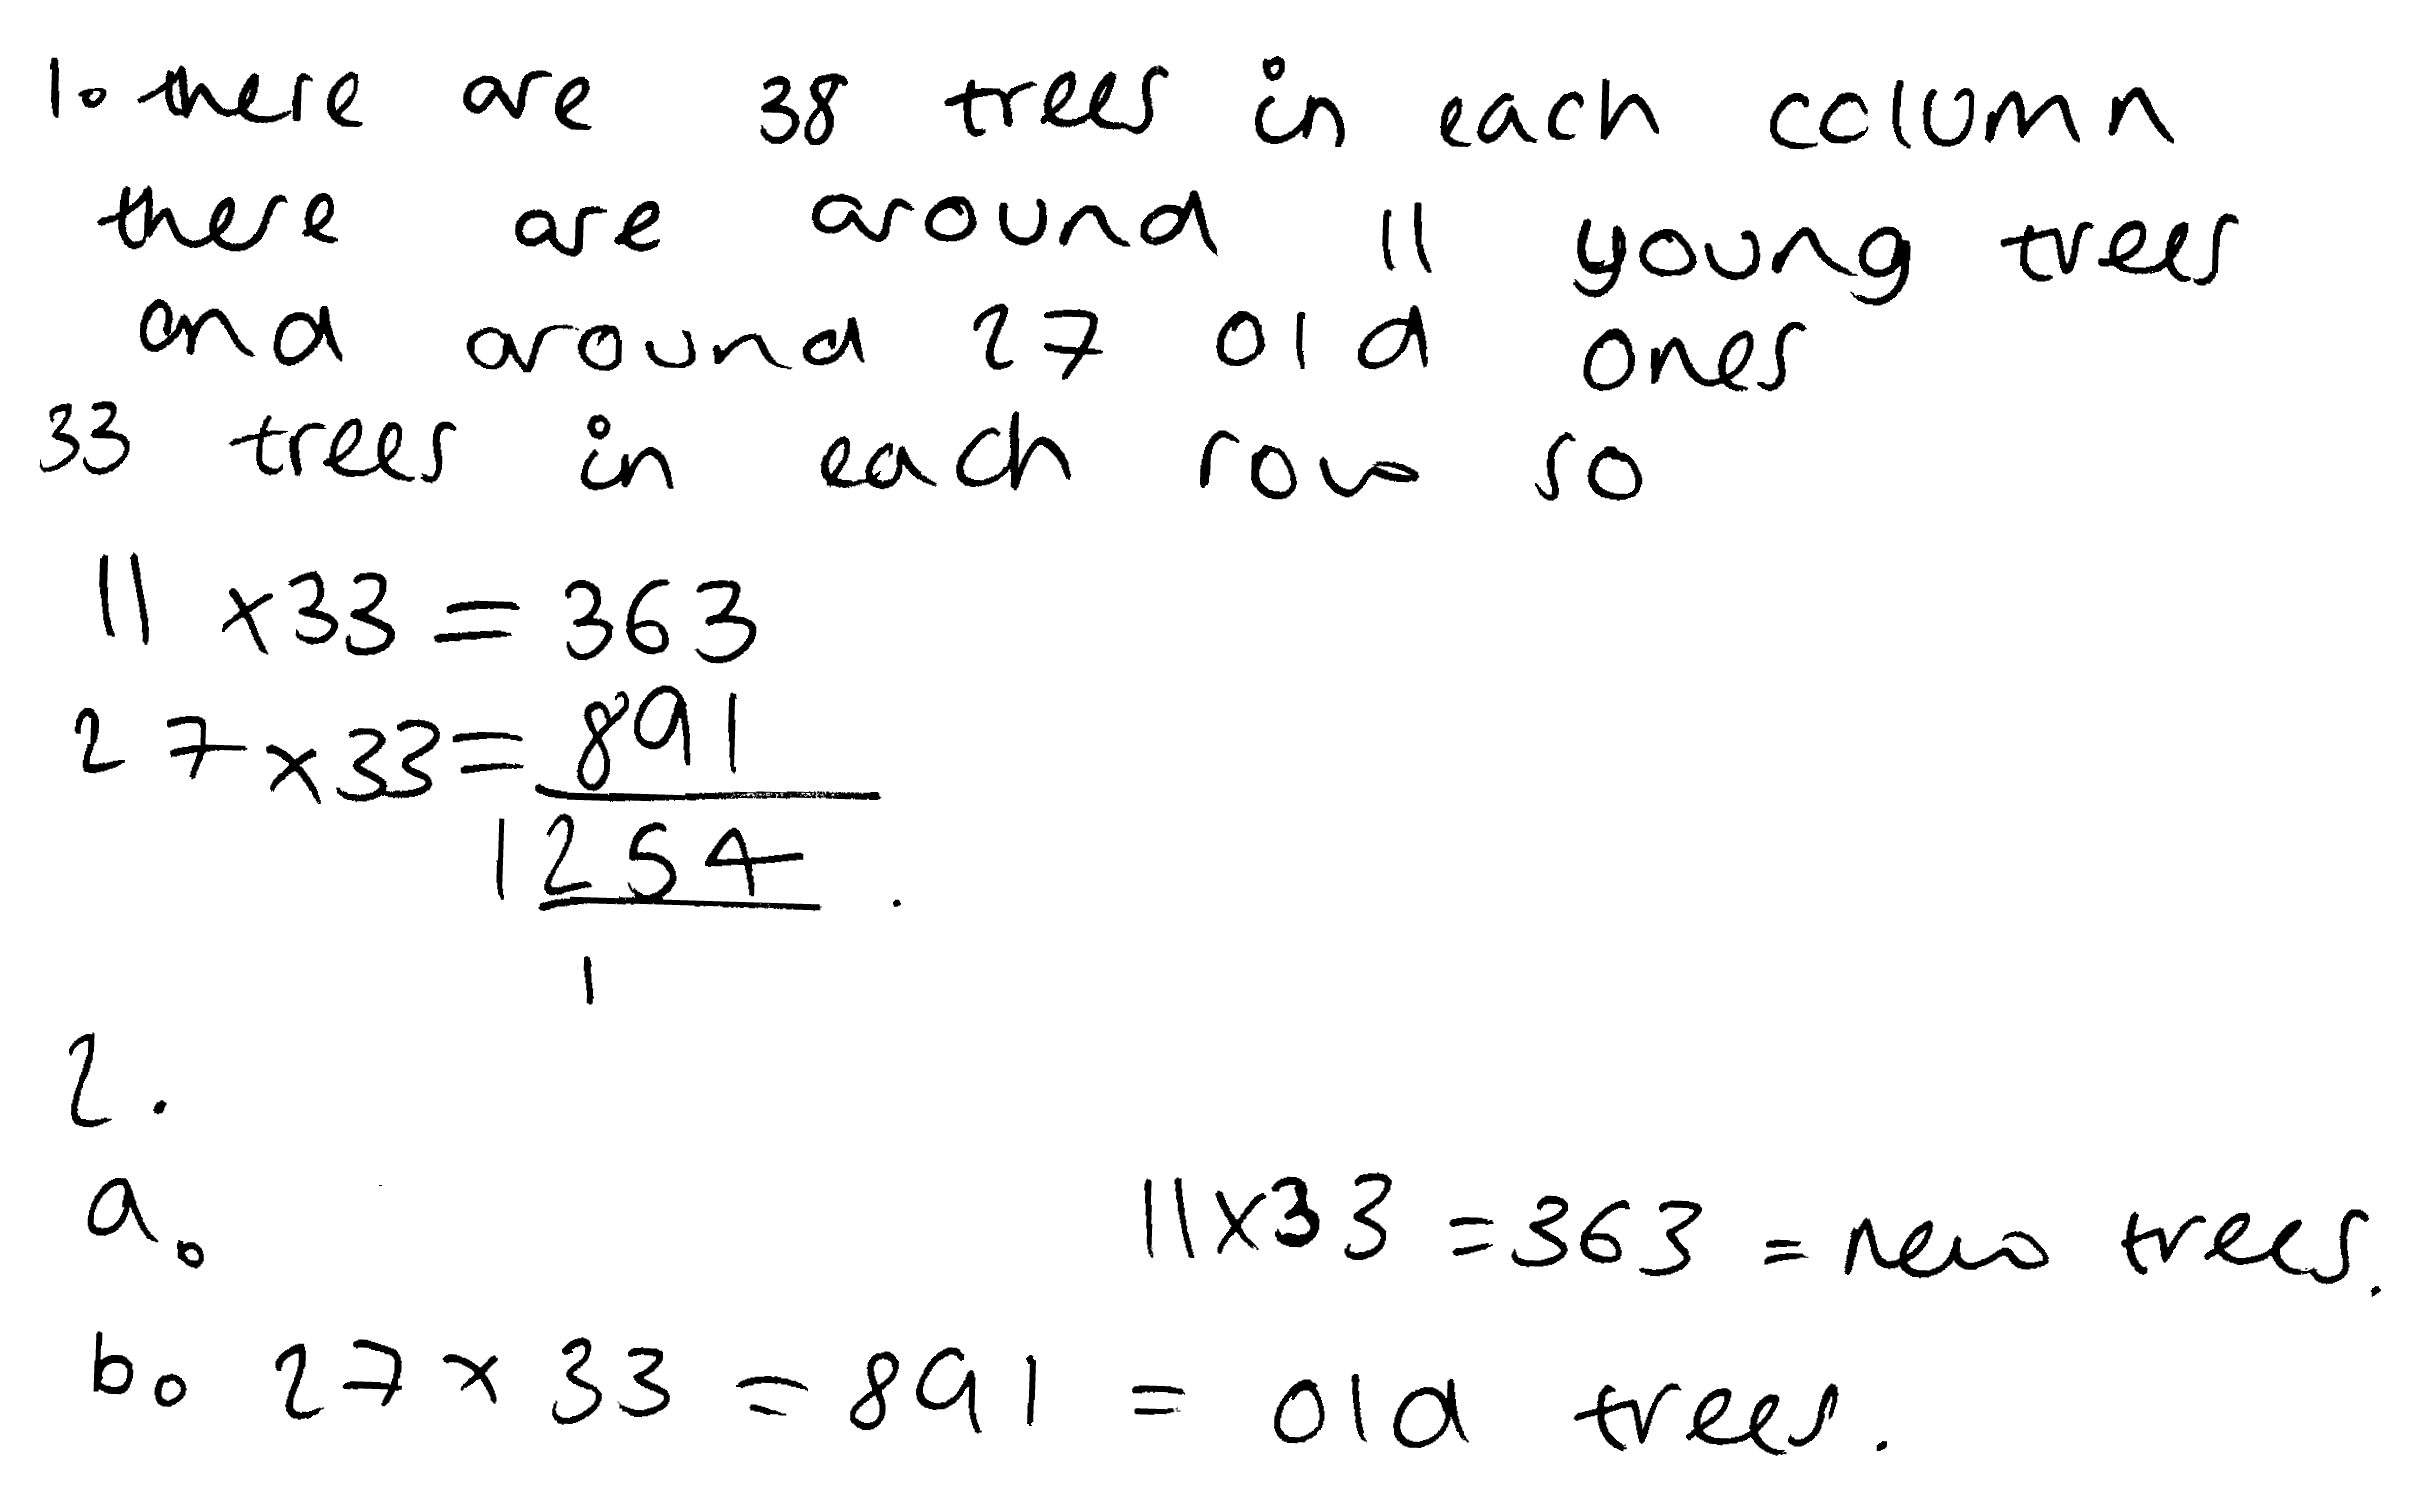 1. there are 38 trees in each column
there are around 11 young trees
and around 27 old ones
33 trees in each row so
11 x33 = 363
27x33= 891
1254
1
2.
a. 11x33 =363 = new trees.
b. 27x33 =891 = old trees.